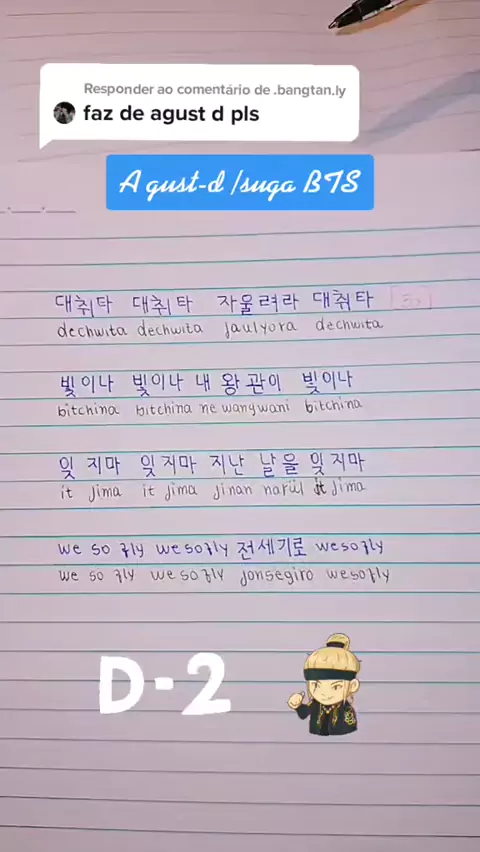 Responder ao comentário de .bangtan.ly
faz de agust d pls
Agust-d /suga BTS
대취타 대취타 자울려라 대취타
dechwita dechwita jaulyora dechwita
빛이나 빛이나 내 왕관이 빛이나
bitchina bitchina ne wangwani bitchina
잊지마 잊지마 지난 날을 잊지마
it jima it jima jinan narül it jima
we so fly we so fly 전세기로 we so fly
we so fly we so fly jonsegiro we so fly
D-2